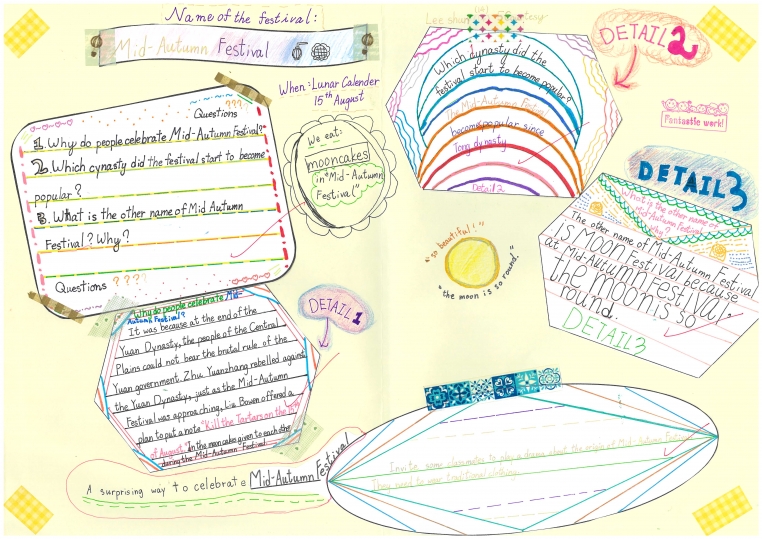 Name of the festival:
Mid-Autumn Festival
When: Lunar Calender
15th August
Questions ???
1. Why do people celebrate Mid-Autumn Festival?
2. Which cynasty did the festival start to become
popular?
3. What is the other name of Mid Autumn
Festival? Why?
Questions ????
We eat:
mooncakes
in "Mid-Autumn
Festival"
DETAIL 1
Why do people celebrate Mid-
Autumn Festival?
It was because at the end of the
Yuan Dynasty, the people of the Central
Plains could not bear the brutal rule of the
Yuan government. Zhu Yuanzhang rebelled against
the Yuan Dynasty, just as the Mid-Autumn
Festival was approaching, Liu Bowen offered a
plan to put a note "Kill the Tartars on the 15th
of August" in the mooncake given to each other
during the Mid-Autumn Festival
A surprising way to celebrate Mid-Autumn Festival
Lee shun
DETAIL 2
Which dynasty did the
festival start to become popular?
The Mid-Autumn Festival
become popular since
Tang dynasty
Detail 2
Fantastic work!
"so beautiful!"
"the moon is so round."
DETAIL 3
What is the other name of
Mid-Autumn Festival?
Why?
The other name of Mid-Autumn Festival
is Moon Festival, because
at Mid-Autumn Festival,
the moon is so
round.
DETAIL 3
Invite some classmates to play a drama about the origin of Mid-Autumn Festival
They need to wear traditional clothing.